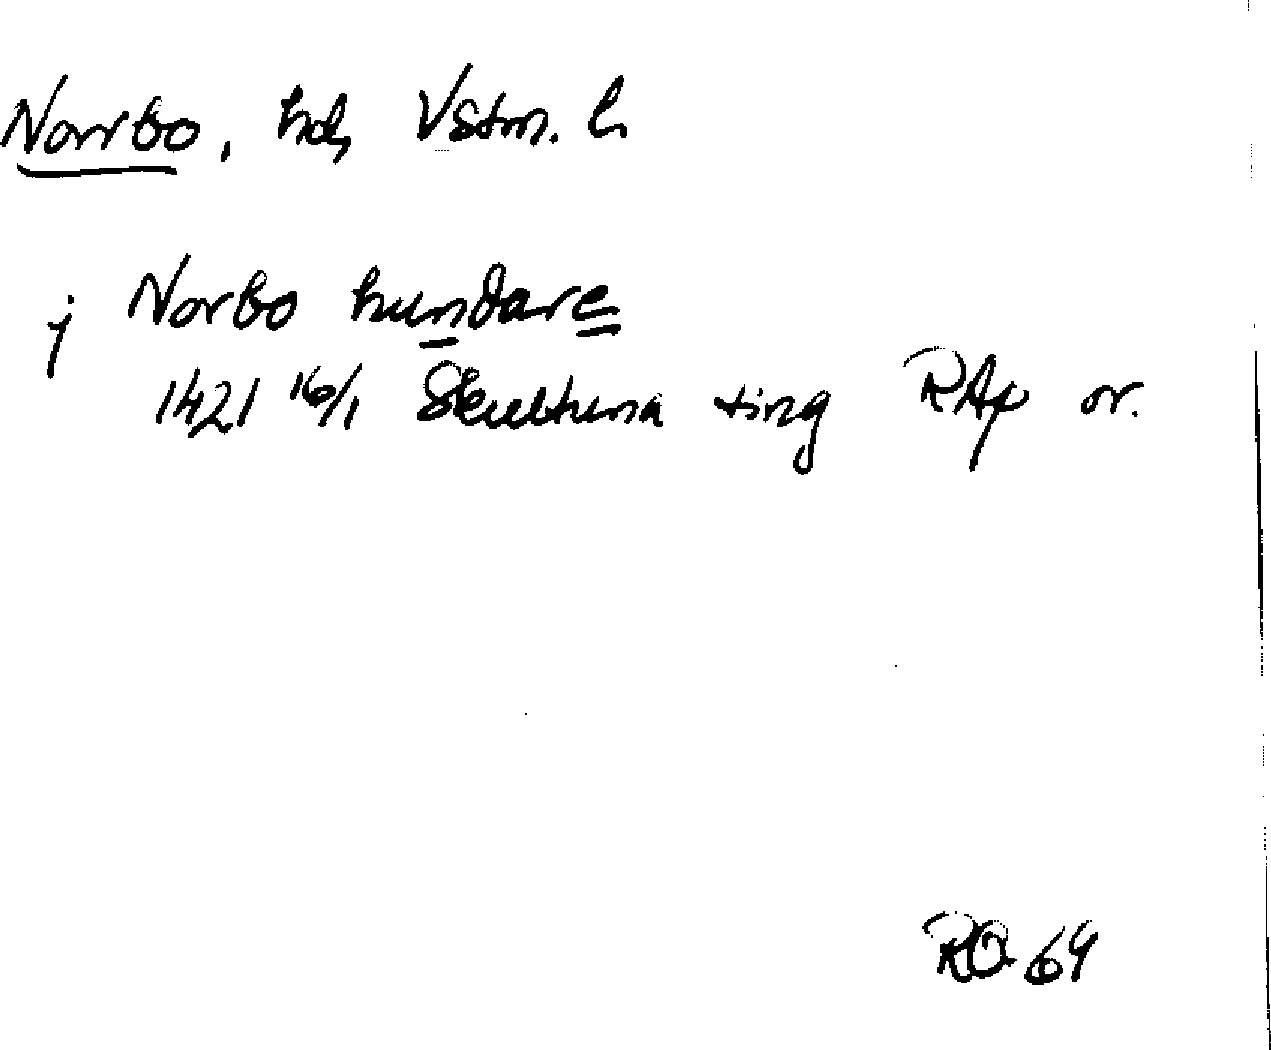 Norrbo, hd, Vstm. l.
j Norbo hundare
1421 16/1 Skultuna ting RAp or.
RO 69